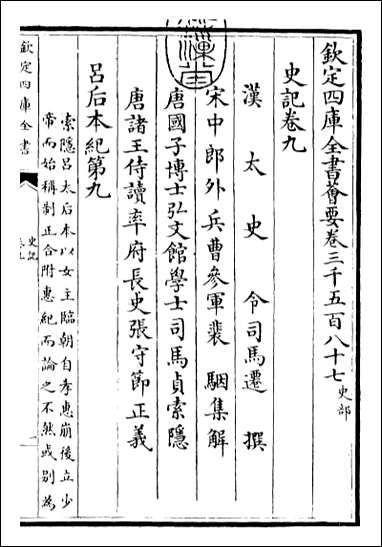 欽定四庫全書薈要卷三千五百八十七 史部
史記卷九
漢太史令司馬遷撰
宋中郎外兵曹參軍裴駰集解
唐國子博士弘文館學士司馬貞索隱
唐諸王侍讀率府長史張守節正義
呂后本紀第九
索隱呂太后本以女主臨朝自孝惠崩後立少
帝而始稱制正合附惠紀而論之不然或別為
欽定四庫全書
史記
卷九
一